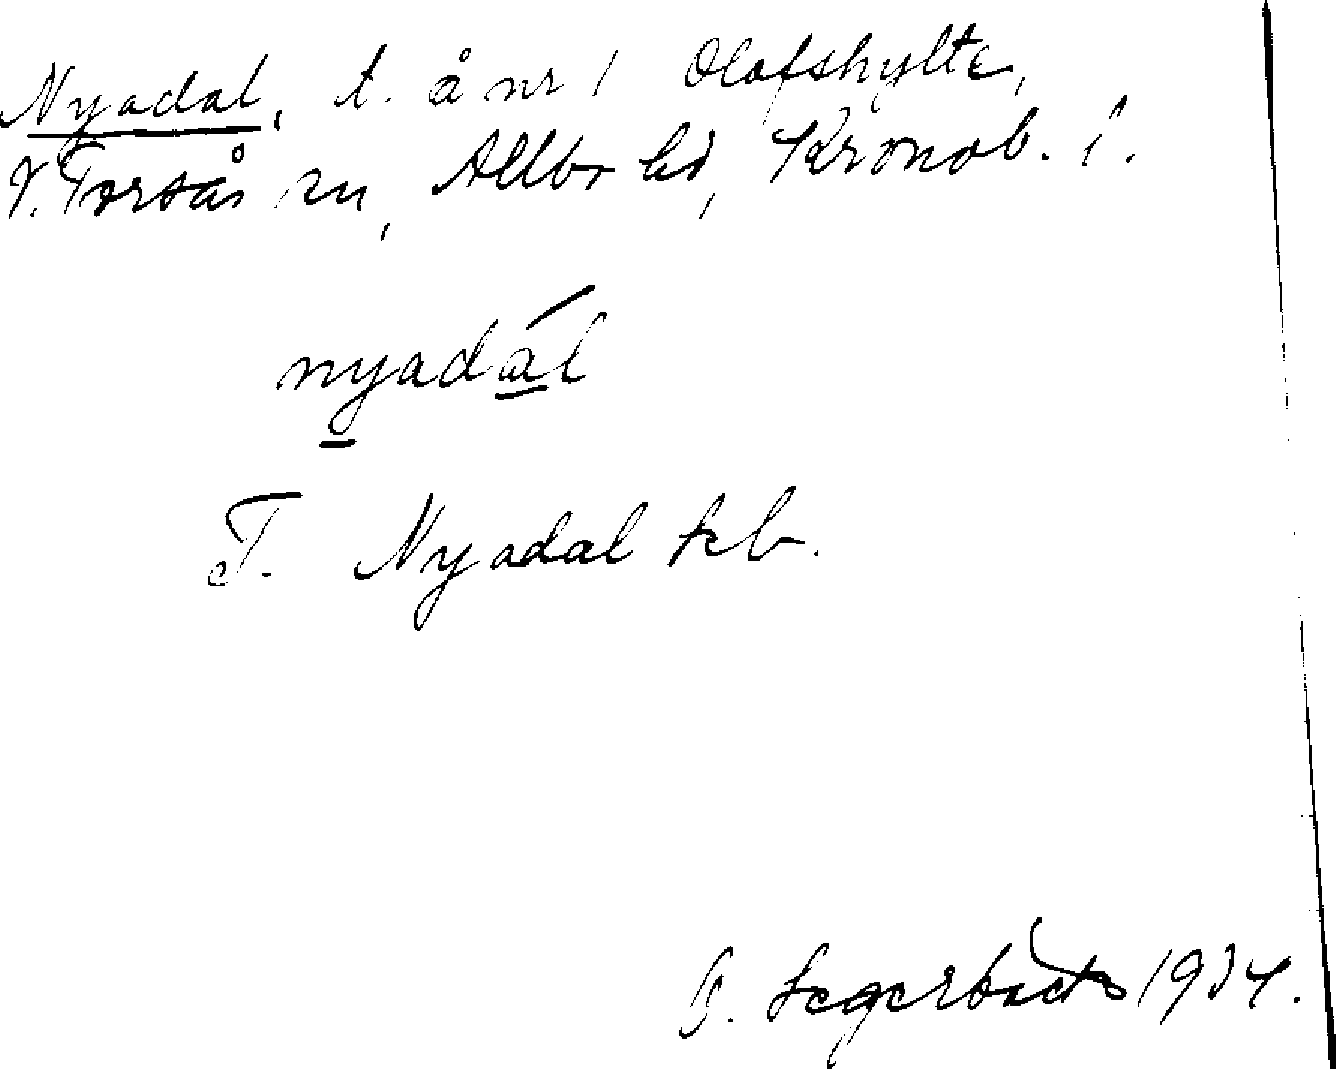 Nyadal, t. å nr 1 Olofshylte,
V. Torsås sn, Allbo hd, Kronob. l.
nyadál
T. Nyadal tcb.
G. Segerbäck 1934.